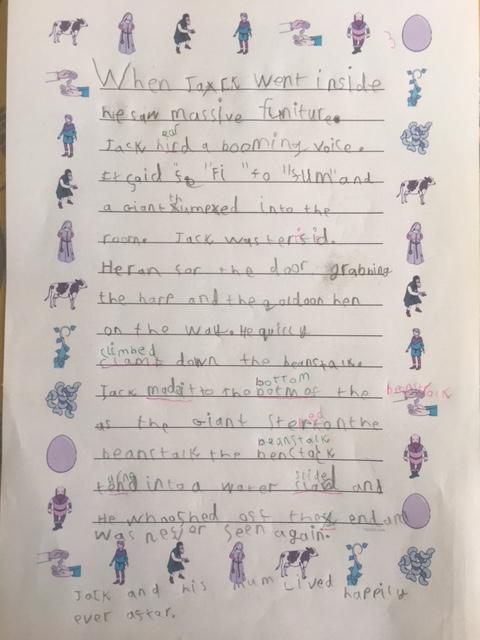 When Jaxck went inside
he saw massive funiture.
ear
Jack hird a booming voice.
It said "fe "Fi "fo "fum" and
th
a giant thumpxed into the
room. Jack was terisid.
He ran for the door grabning
the harp and the goldoon hen
on the way. He quicly
climbed
clamt down the beanstalk.
bottom
Jack made it to the botm of the beanstalk
as the Giant sterted on the
beanstalk
beanstalk the benstack
slide
into a water slad and
He whooshed off the end and
was never seen again.
Jack and his mum lived happily
ever after.